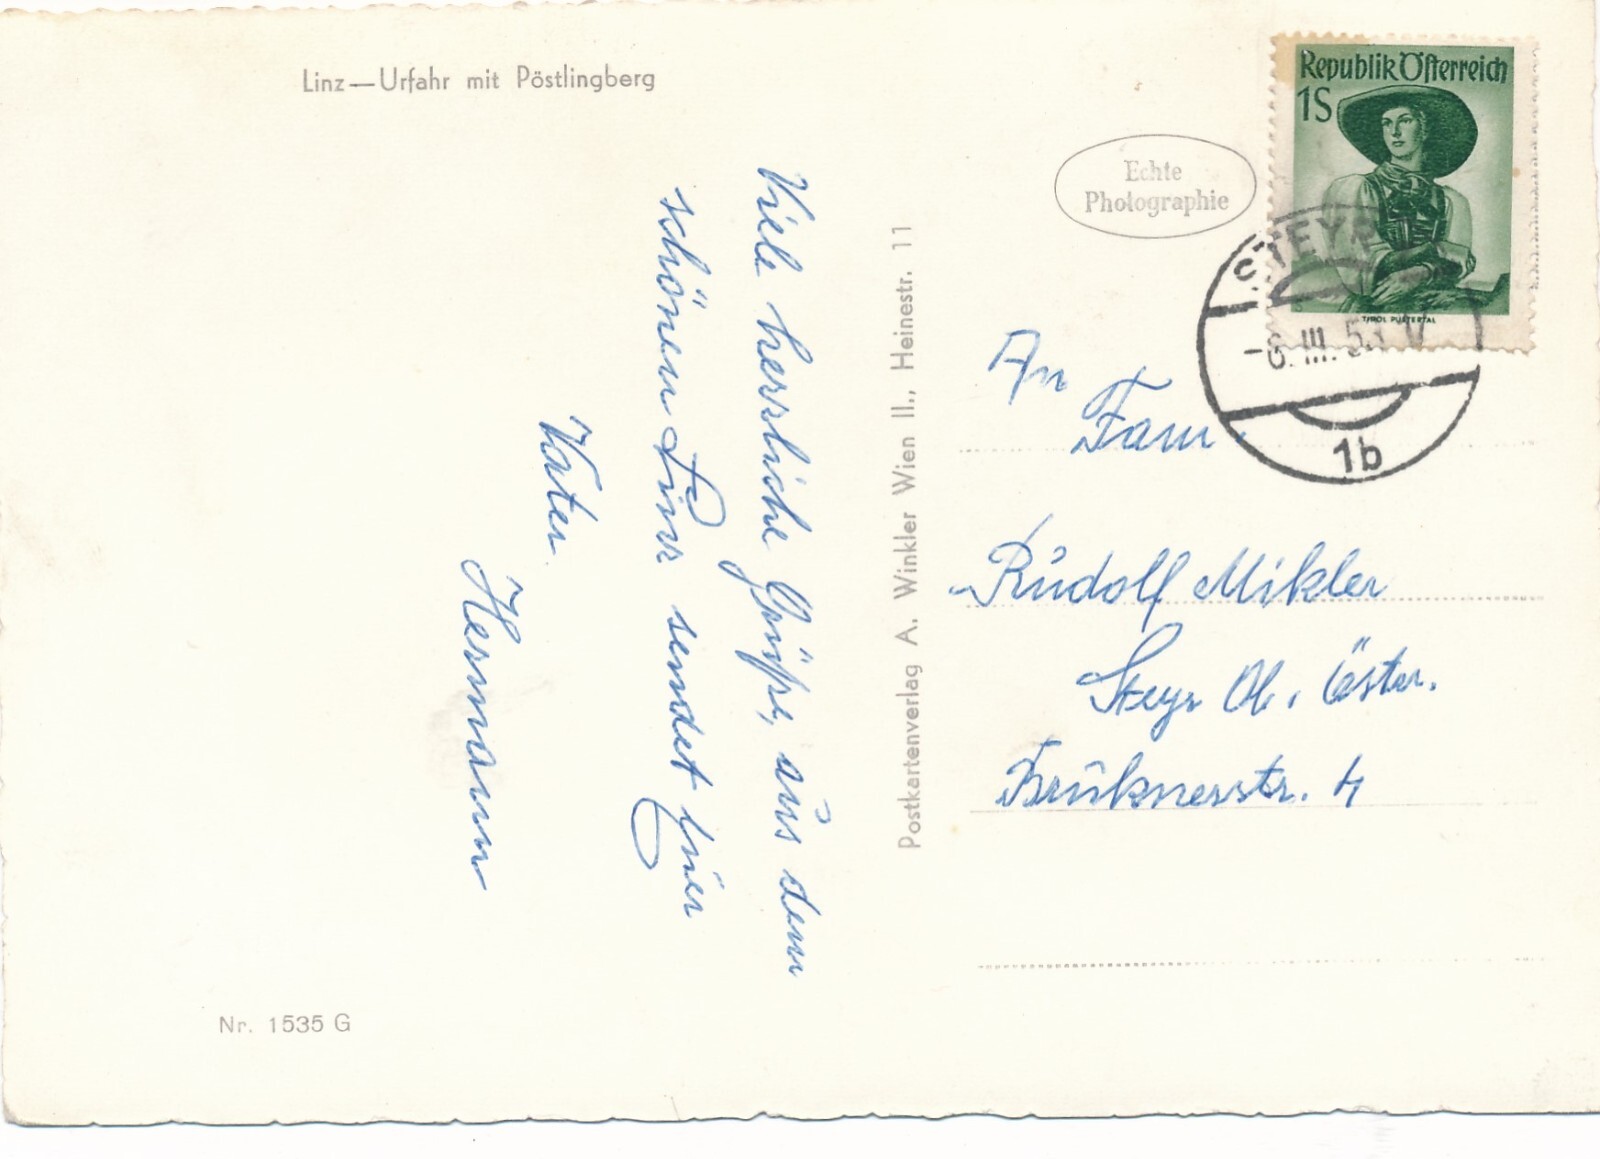 Linz—Urfahr mit Pöstlingberg
Viele herzliche Grüße, aus dem
schönen Linz sendet Euer
Vater
Hermann
Nr. 1535 G
Postkartenverlag A. Winkler Wien II., Heinestr. 11
Echte
Photographie
Republik Österreich
1S
TIROL PUSTERTAL
STEYR
-6. III. 53 V
1b
An
Fam.
Rudolf Mikler
Steyr Ob. Östr.
Bruknerstr. 4